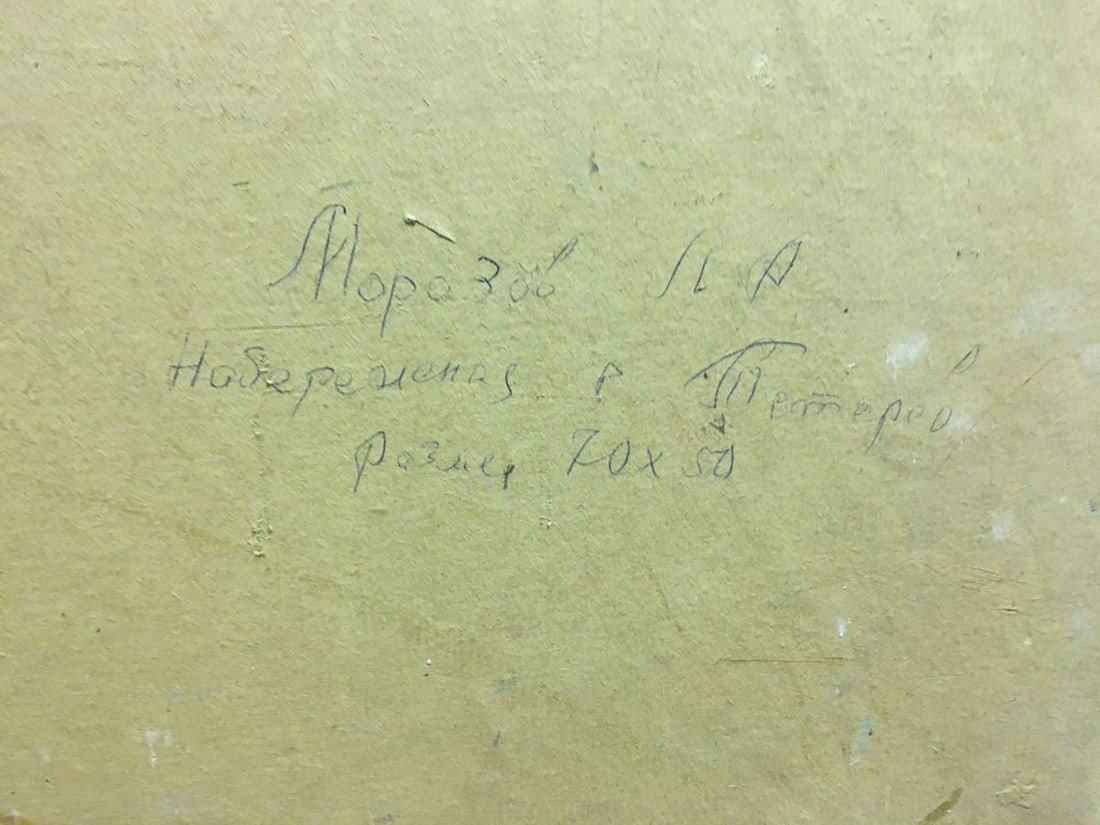 Морозов Л А
Набережная в
размер 70х50